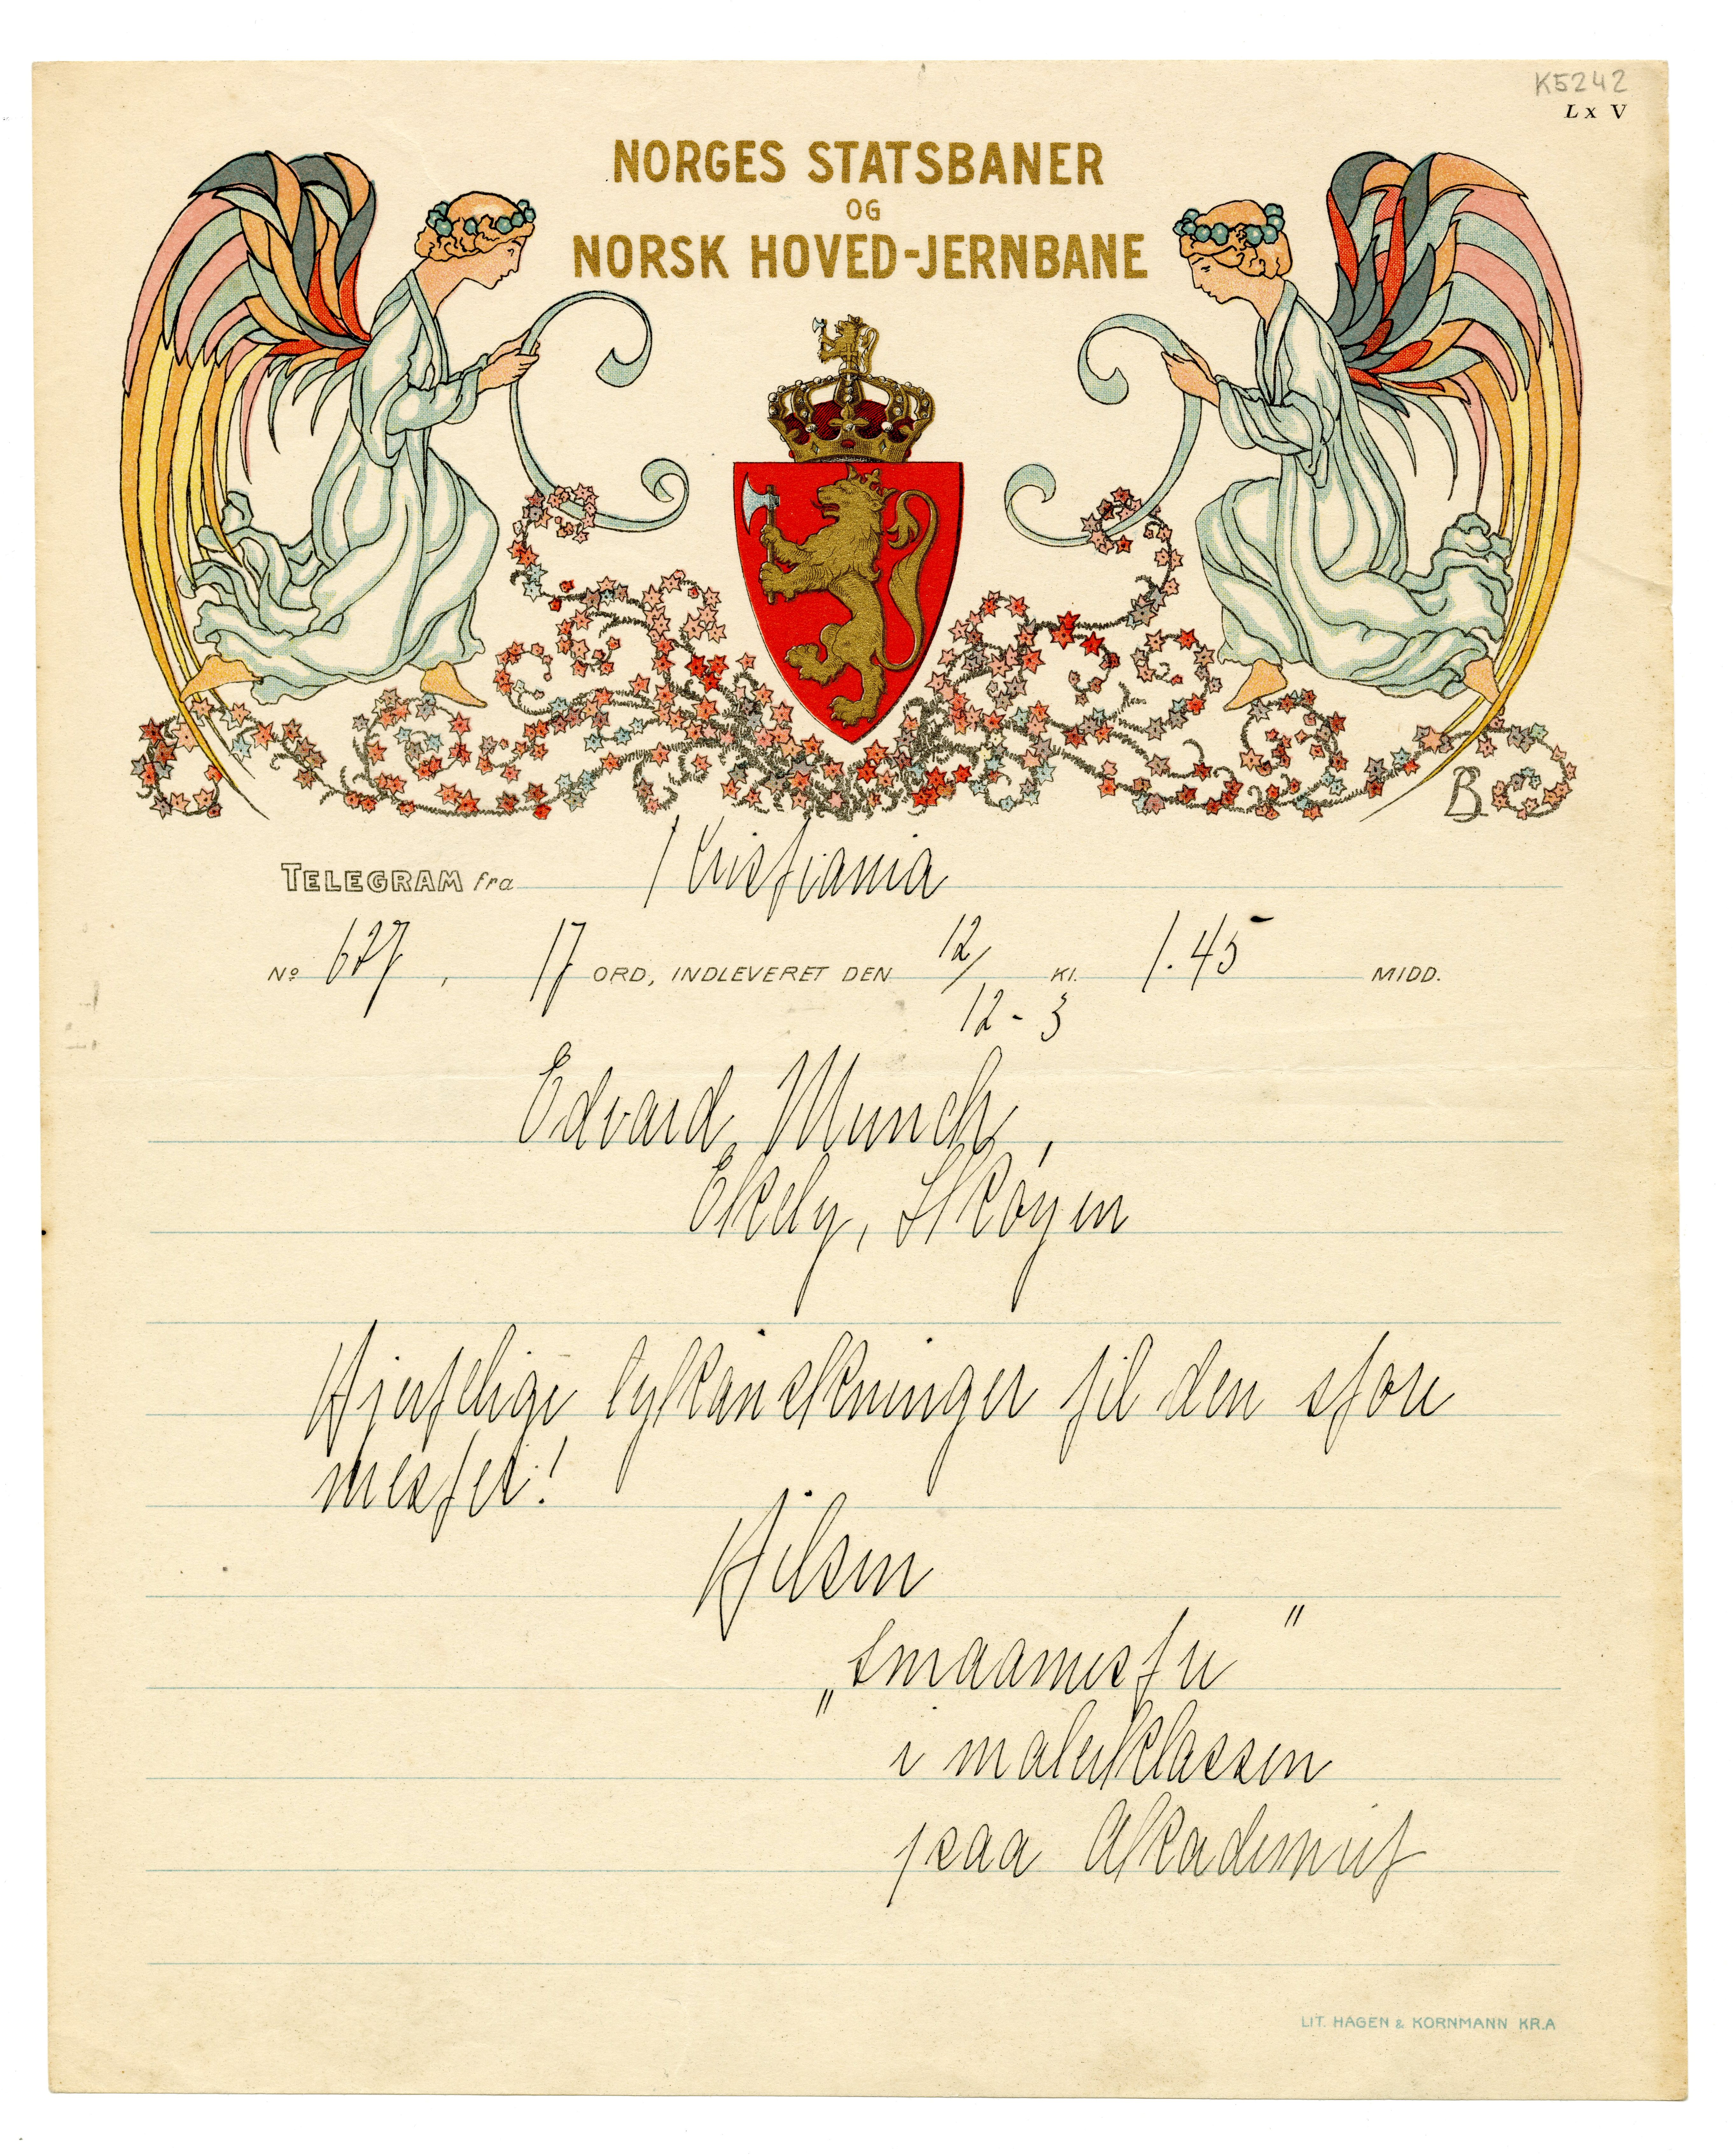 K5242
Lx V
NORGES STATSBANER
OG
NORSK HOVED-JERNBANE
B
TELEGRAM fra Kristiania
No 627, 17 ORD, INDLEVERET DEN 12/12-3 Kl. 1.45 MIDD.
Edvard Munch,
Ekely, Skøyen
Hjertelige lykønskninger til den store
mester!
Hilsen
„Smaamestre"
i malerklassen
paa Akademiet
LIT. HAGEN & KORNMANN KR.A